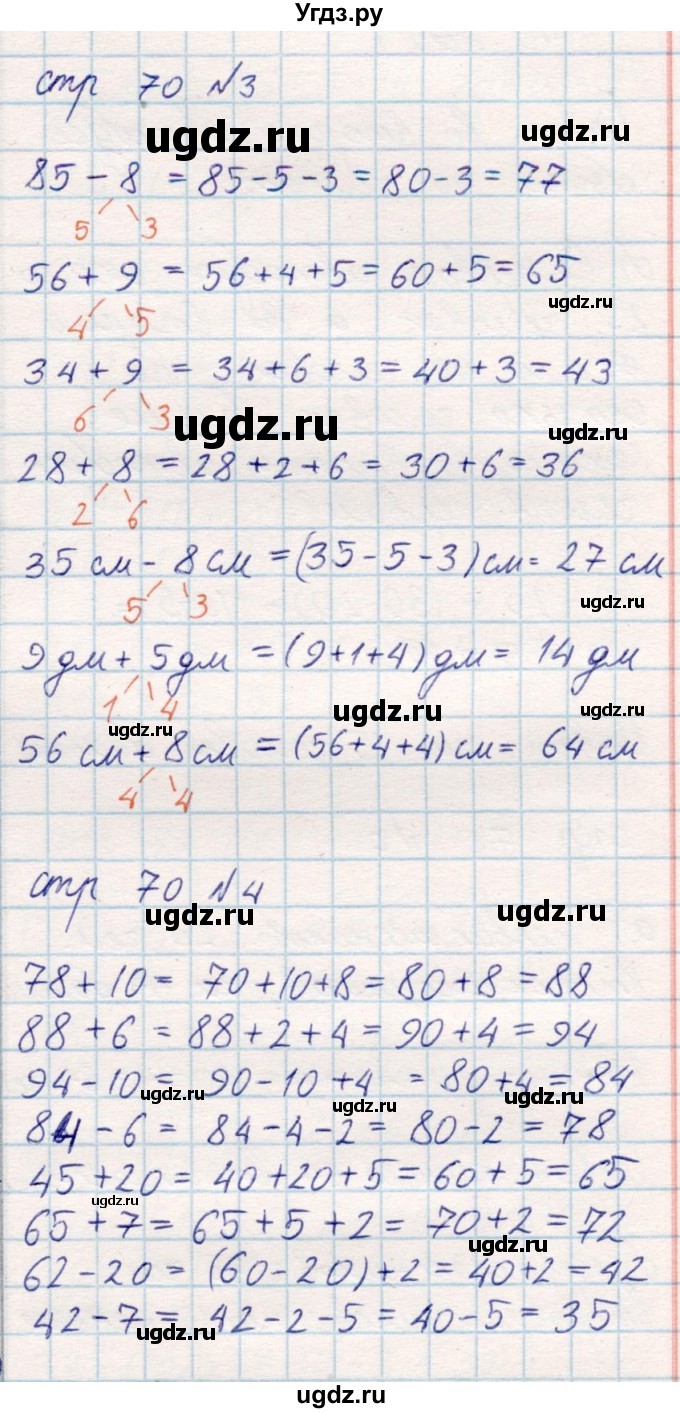 Угдз.ру
стр 70 №3
ugdz.ru
ugdz.ru
85 - 8 = 85-5-3 = 80-3 = 77
5 3
56 + 9 = 56+4+5 = 60+5 = 65
ugdz.ru
4 5
34 + 9 = 34+6+3 = 40+3 = 43
6 3
ugdz.ru
ugdz.ru
28 + 8 = 28+2+6 = 30+6 = 36
2 6
35 см - 8 см = (35-5-3) см = 27 см
5 3
ugdz.ru
9 дм + 5 дм = (9+1+4) дм = 14 дм
1 4
ugdz.ru
ugdz.ru
ugdz.ru
56 см + 8 см = (56+4+4) см = 64 см
4 4
стр 70 №4
ugdz.ru
ugdz.ru
78 + 10 = 70+10+8 = 80+8 = 88
88 + 6 = 88+2+4 = 90+4 = 94
94 - 10 = 90-10+4 = 80+4 = 84
ugdz.ru
ugdz.ru
84 - 6 = 84-4-2 = 80-2 = 78
45 + 20 = 40+20+5 = 60+5 = 65
ugdz.ru
65 + 7 = 65+5+2 = 70+2 = 72
ugdz.ru
62 - 20 = (60-20)+2 = 40+2 = 42
42 - 7 = 42-2-5 = 40-5 = 35
ugdz.ru
ugdz.ru